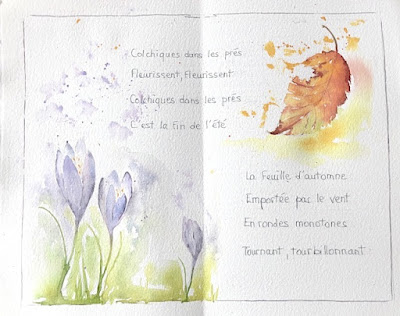 Colchiques dans les prés
Fleurissent, fleurissent
Colchiques dans les prés
C'est la fin de l'été
La feuille d'automne
Emportée par le vent
En rondes monotones
Tournant, tourbillonnant